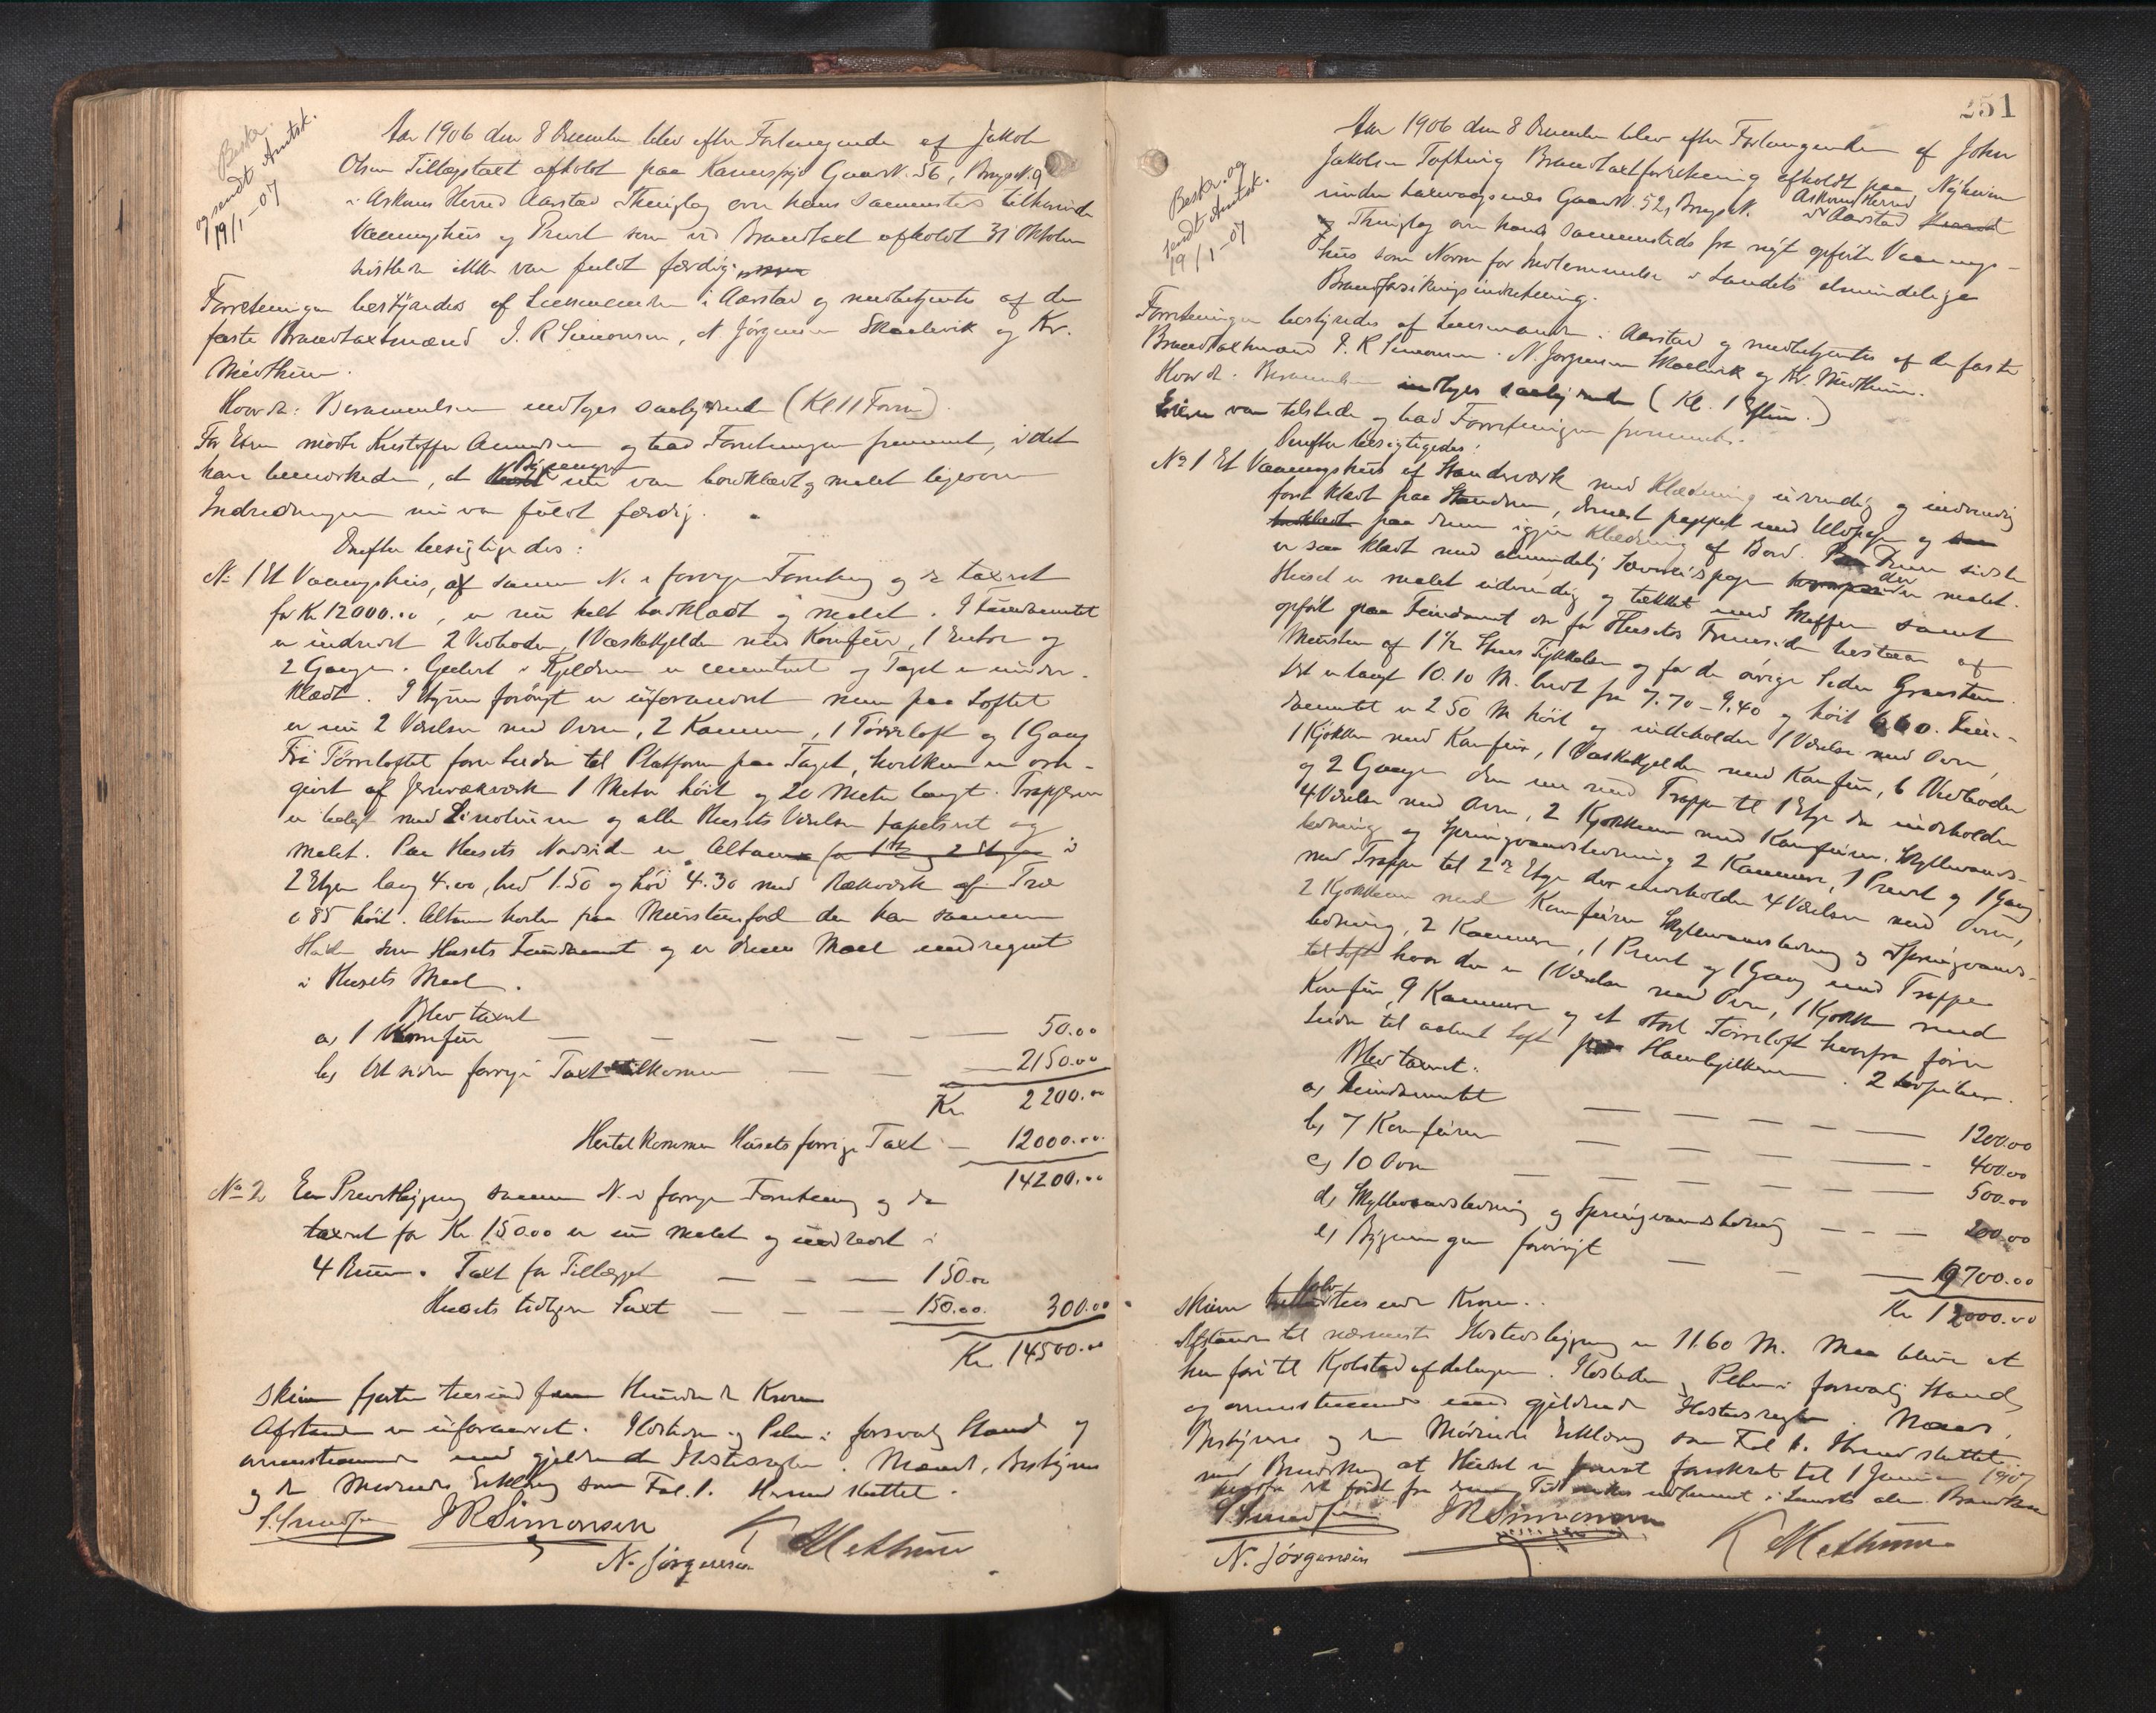 Beskr.
og sendt Amtsk.
19/1-07
Aar 1906 den 8 December blev efter Forlangende af Jakob
Olsen Tillægstaxt afholdt paa Gaards N. 56, Brugs N. 9
i Askøens Herred Aarstad Thinglag over hans sammesteds tilhørende
Vaaningshus og Privet som ved Brandtaxt afholdt 31 Oktober
sidstleden ikke var fuldt færdig.
Forretningen bestyredes af Lensmanden i Aarstad og medbetjentes af de
faste Brandtaxtmænd I. R Simonsen, N Jørgensen Skaelvik og Kr.
Midthun.
Hvorda: Berammelsen medtages saalydende (Kl 11 Form).
For Eieren mødte Kristoffer Amundsen og bad Forretningen fremmet, idet
han bemærkede, at Bygningen nu var bordklædt og malet ligesom
Indredningen nu var fuldt færdig.
Derefter besigtigedes:
No 1 Et Vaaningshus, af samme N. i forrige Forretning og da taxeret
for Kr 12000.00, er nu helt bordklædt og malet. I Fundamentet
er indredet 2 Vedboder, 1 Vaskekjelder med Komfur, 1 Entre og
2 Gange. Gulvet i Kjelderen er cementeret og Taget er under-
klædt. I Etagerne forøvrigt er uforandret men paa Loftet
er nu 2 Værelser med Ovne, 2 Kammer, 1 Tørreloft og 1 Gang
Fra Tørreloftet fører Leder til Platform paa Taget, hvilken er om-
givet af Jernrækværk 1 Meter høit og 20 Meter langt. Trapperne
er belagt med Linoleum og alle Husets Værelser tapetseret og
malet. Paa Husets Nordside er Altaner for 1ste og 2 Etage i
2 Etager lang 4.00, bred 1.50 og høi 4.30 med Rækværk af Træ
0.85 høit. Altanen hviler paa Murstensfod der har samme
Høide som Husets Fundament og er denne Maal medregnet
i Husets Maal.
Blev taxeret
a, 1 Komfur — — — — — 50.00
b, Det siden forrige Taxt tilkomne — — — 2150.00
Kr. 2200.00
Hertil kommer Husets forrige Taxt — 12000.00
14200.00
No 2 En Privetbygning samme N. i forrige Forretning og da
taxeret for Kr. 150.00 er nu malet og indredet i
4 Rum. Taxt for Tillægget — — — 150.00
Husets tidligere Taxt — — — 150.00 300.00
Kr. 14500.00
skriver fjorten tusind fem Hundrede Kroner
Afstanden er uforandret. Ildsteder og Piber i forsvarlig Stand og
overensstemmende med gjældende Ildstedsregler. Mænd, Bestyrer
og den Mødendes Erklæring som Fol. 1. Hermed sluttet.
JRSimonsen
N. Jørgensen
K Midthun
251
Beskr. og
sendt Amtsk.
19/1-07
Aar 1906 den 8 December blev efter Forlangende af John
Jakobsen Toftevig Brandtaxtforretning afholdt paa Nyheim
under Gaards N. 52, Brugs N. i Askøens Herred Aarstad Herred
Thinglag over hans sammesteds fra nyt opførte Vaanings-
hus som Norm for Indlemmelse i Landets almindelige
Brandforsikringsindretning.
Forretningen bestyredes af Lensmanden i Aarstad og medbetjentes af de faste
Brandtaxtmænd I. R Simonsen, N. Jørgensen Skaelvik og Kr. Midthun.
Hvorda: Berammelsen indtages saalydende (Kl. 1 Efterm.)
Eieren var tilstede og bad Forretningen fremmet.
Derefter besigtigedes:
No 1 Et Vaaningshus af Standerværk med Klædning udvendig og indvendig
først klædt paa Standerne, dernæst pappet med Uldpap og
paa denne igjen Klædning af Bord. Denne sidste
er saa klædt med almindelig Pap der er malet.
Huset er malet udvendig og tækket med Skiffer samt
opført paa Fundament der for Husets Forside bestaar af
Mursten af 1 1/2 Stens Tykkelse og for de øvrige Sider Graasten.
Det er langt 10.10 M. bredt fra 7.70 – 9.40 og høit 6.60. Fun-
damentet er 2.50 M høit og indeholder 1 Værelse med Ovn,
1 Kjøkken med Komfur, 1 Vaskekjelder med Komfur, 6 Vedboder
og 2 Gange den ene med Trappe til 1 Etage der indeholder
4 Værelser med Ovne, 2 Kjøkkener med Komfurer, Skyllevands-
ledning og Springvandsledning 2 Kammere, 1 Privet og 1 Gang
med Trappe til 2den Etage der indeholder 4 Værelser med Ovne,
2 Kjøkkener med Komfurer Skyllevandsledning og Springvands-
ledning, 2 Kammere, 1 Privet og 1 Gang med Trappe
til Loft hvor der er 1 Værelse med Ovn, 1 Kjøkken med
Komfur, 9 Kammere og et stort Tørreloft hvorfra fører
Leder til aabent Loft paa Hanebjelkerne. 2 Piber.
Blev taxeret:
a, Fundamentet — — — — 1200.00
b, 7 Komfurer — — — — 400.00
c, 10 Ovne — — — — 500.00
d, Skyllevandsledning og Springvandsledning — — — 200.00
e, Bygningen forøvrigt — — — 9700.00
Kr 12000.00
skriver tolv tusende Kroner..
Afstanden til nærmeste Ildstedsbygning er 11.60 M. Maa blive at
henføre til Kjøbstadafdelingen. Ildsteder, Piber i forsvarlig Stand
og overensstemmende med gjældende Ildstedsregler. Mænd,
Bestyrer og den Mødendes Erklæring som Fol 1. Hermed sluttet
med Bemærkning at Huset er privat forsikret til 1 Januar 1907
JRSimonsen
N. Jørgensen
K Midthun